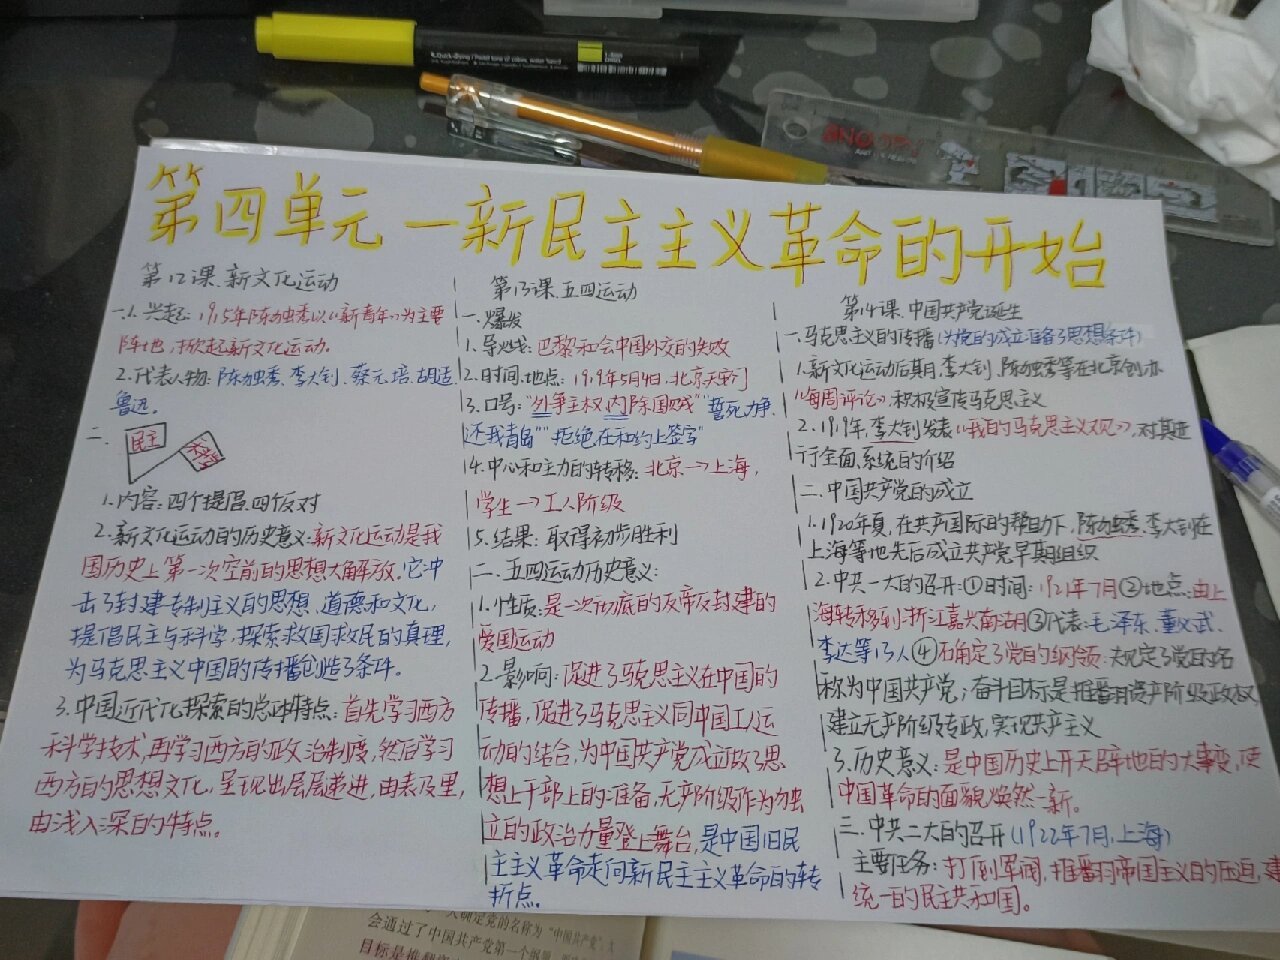 第四单元一新民主主义革命的开始
第12课.新文化运动
一.1.兴起:1915年陈独秀以《新青年》为主要
阵地,掀起新文化运动.
2.代表人物:陈独秀、李大钊、蔡元培、胡适、
鲁迅.
二.
民主
科学
1.内容:四个提倡.四个反对
2.新文化运动的历史意义:新文化运动是我
国历史上第一次空前的思想大解放.它冲
击了封建专制主义的思想、道德和文化,
提倡民主与科学,探索救国救民的真理,
为马克思主义中国的传播创造了条件.
3.中国近代化探索的总体特点:首先学习西方
科学技术,再学习西方的政治制度,然后学习
西方的思想文化,呈现出层层递进,由表及里,
由浅入深的特点。
第13课.五四运动
一.爆发
1.导火线:巴黎和会中国外交的失败
2.时间、地点:1919年5月4日,北京天安门
3.口号:"外争主权,内除国贼""誓死力争,
还我青岛""拒绝在和约上签字"
4.中心和主力的转移:北京→上海,
学生→工人阶级
5.结果:取得初步胜利
二.五四运动历史意义:
1.性质:是一次彻底的反帝反封建的
爱国运动
2.影响:促进了马克思主义在中国的
传播,促进了马克思主义同中国工人运
动的结合,为中国共产党成立做了思
想上干部上的准备,无产阶级作为独
立的政治力量登上舞台,是中国旧民
主主义革命走向新民主主义革命的转
折点。
第14课.中国共产党诞生
一.马克思主义的传播(为党的成立准备了思想条件)
1.新文化运动后期,李大钊、陈独秀等在北京创办
《每周评论》,积极宣传马克思主义
2.1919年,李大钊发表《我的马克思主义观》,对其进
行全面、系统的介绍
二.中国共产党的成立
1.1920年夏,在共产国际的帮助下,陈独秀、李大钊在
上海等地先后成立共产党早期组织
2.中共一大的召开:①时间:1921年7月②地点:由上
海转移到浙江嘉兴南湖③代表:毛泽东、董必武、
李达等13人④确定了党的纲领:规定了党的名
称为中国共产党;奋斗目标是推翻资产阶级政权
建立无产阶级专政,实现共产主义
3.历史意义:是中国历史上开天辟地的大事变,使
中国革命的面貌焕然一新。
三.中共二大的召开(1922年7月,上海)
主要任务:打倒军阀,推翻帝国主义的压迫,建
统一的民主共和国。
会通过了中国共产党第一个纲
目标是推翻